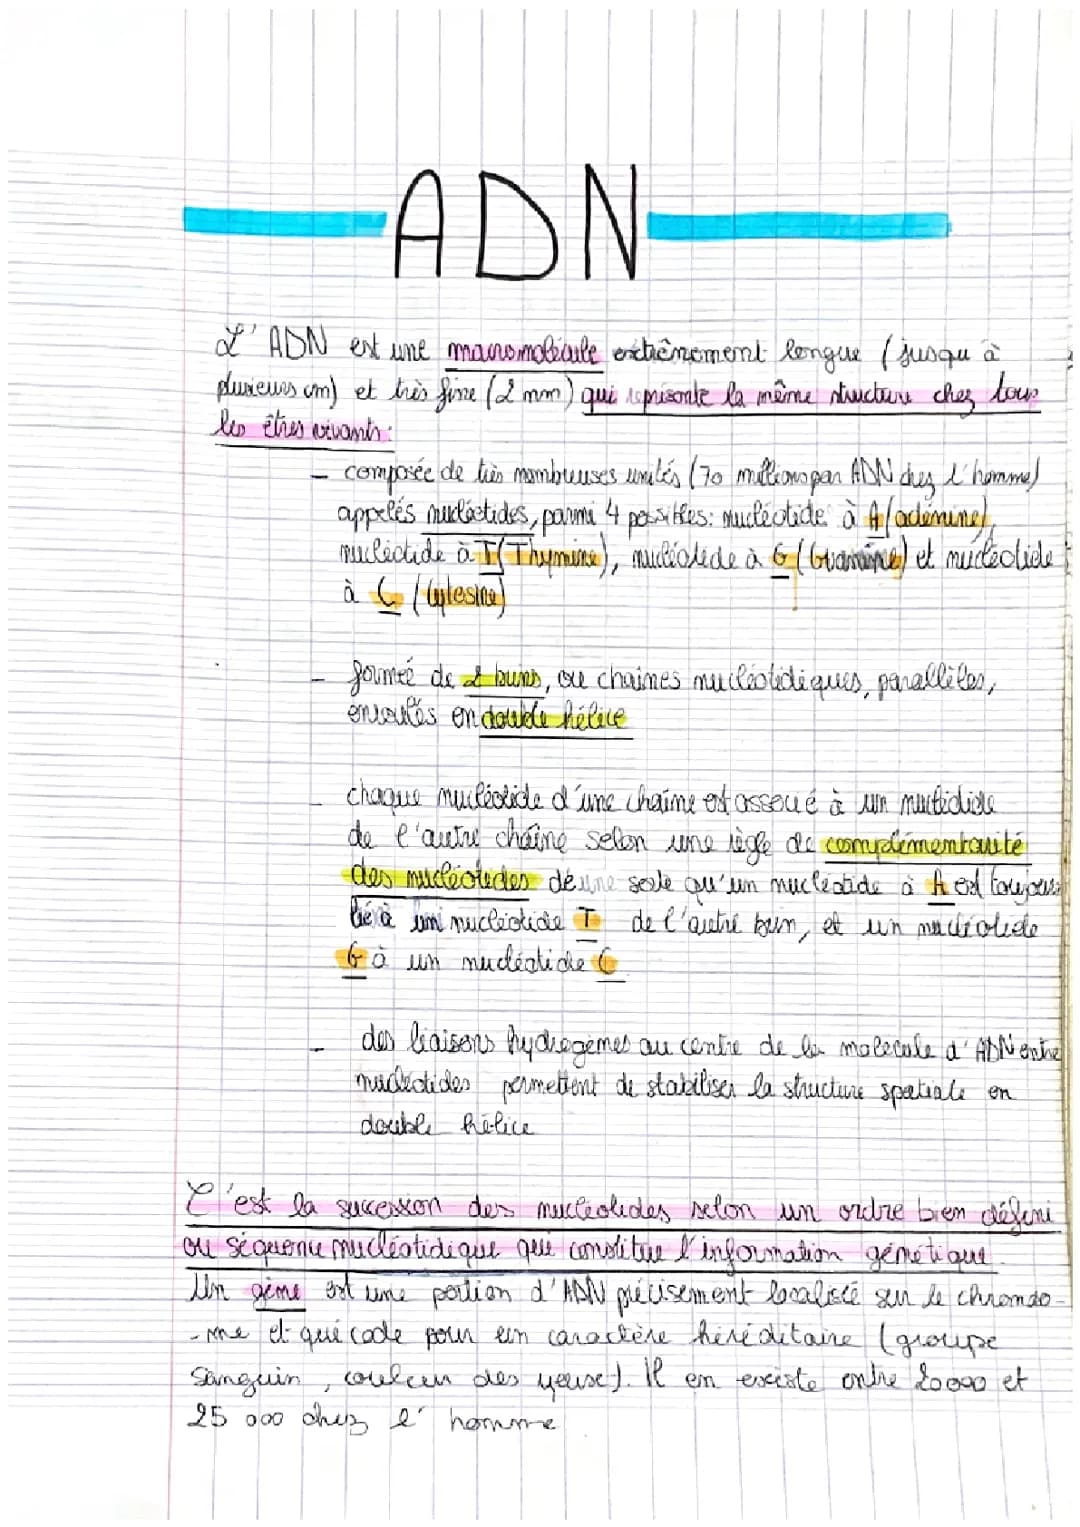 ADN
L'ADN est une macromolécule extrêmement longue (jusqu'à
plusieurs cm) et très fine (2 nm) qui représente la même structure chez tous
les êtres vivants:
- composée de très nombreuses unités (70 millions par ADN chez l'homme)
appelés nucléotides, parmi 4 possibles: nucléotide à A (adénine),
nucléotide à T (Thymine), nucléotide à G (Guanine) et nucléotide
à C (Cytosine)
- formée de 2 brins, ou chaînes nucléotidiques, parallèles,
enroulés en double hélice
- chaque nucléotide d'une chaîne est associé à un nucléotide
de l'autre chaîne selon une règle de complémentarité
des nucléotides de une sorte qu'un nucléotide à A est toujours
lié à un nucléotide T de l'autre brin, et un nucléotide
G à un nucléotide C
- des liaisons hydrogènes au centre de la molécule d'ADN entre
nucléotides permettent de stabiliser la structure spatiale en
double hélice
C'est la succession des nucléotides selon un ordre bien défini
ou séquence nucléotidique qui constitue l'information génétique.
Un gène est une portion d'ADN précisement localisé sur le chromoso-
-me et qui code pour un caractère héréditaire (groupe
sanguin, couleur des yeuse). Il en existe entre 20000 et
25 000 chez l'homme